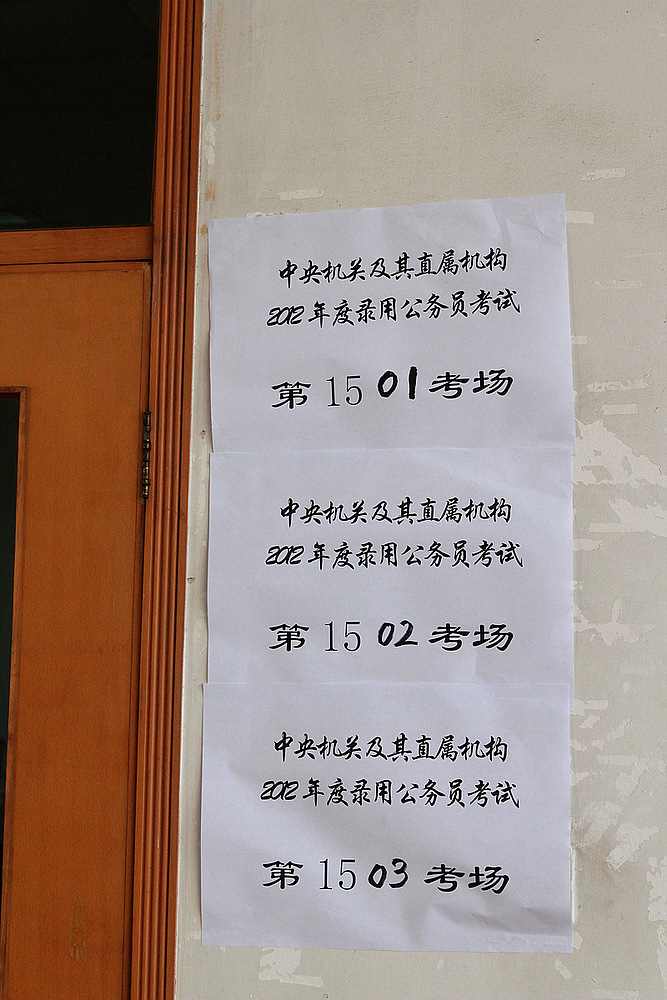 中央机关及其直属机构
2012年度录用公务员考试
第 15 01 考场
中央机关及其直属机构
2012年度录用公务员考试
第 15 02 考场
中央机关及其直属机构
2012年度录用公务员考试
第 15 03 考场